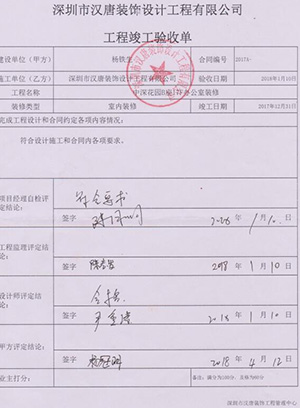 深圳市汉唐装饰设计工程有限公司
工程竣工验收单
建设单位（甲方） 杨铁军 合同编号 2017A-
施工单位（乙方） 深圳市汉唐装饰设计工程有限公司 验收日期 2018年1月10日
工程名称 中深花园B座 办公室装修
装修类型 室内装修 竣工日期 2017年12月31日
完成工程设计和合同约定各项内容情况：
符合设计施工和合同内各项要求。
项目经理自检评定结论：
符合要求
签字 2018 1月10.
工程监理评定结论：
签字 2018 1月10日
设计师评定结论：
合格
签字 2018 1月10日
甲方评定结论：
签字 2018 4月12日
业主打分： 备注：满分为100分，及格为60分
深圳市汉唐装饰工程管理中心